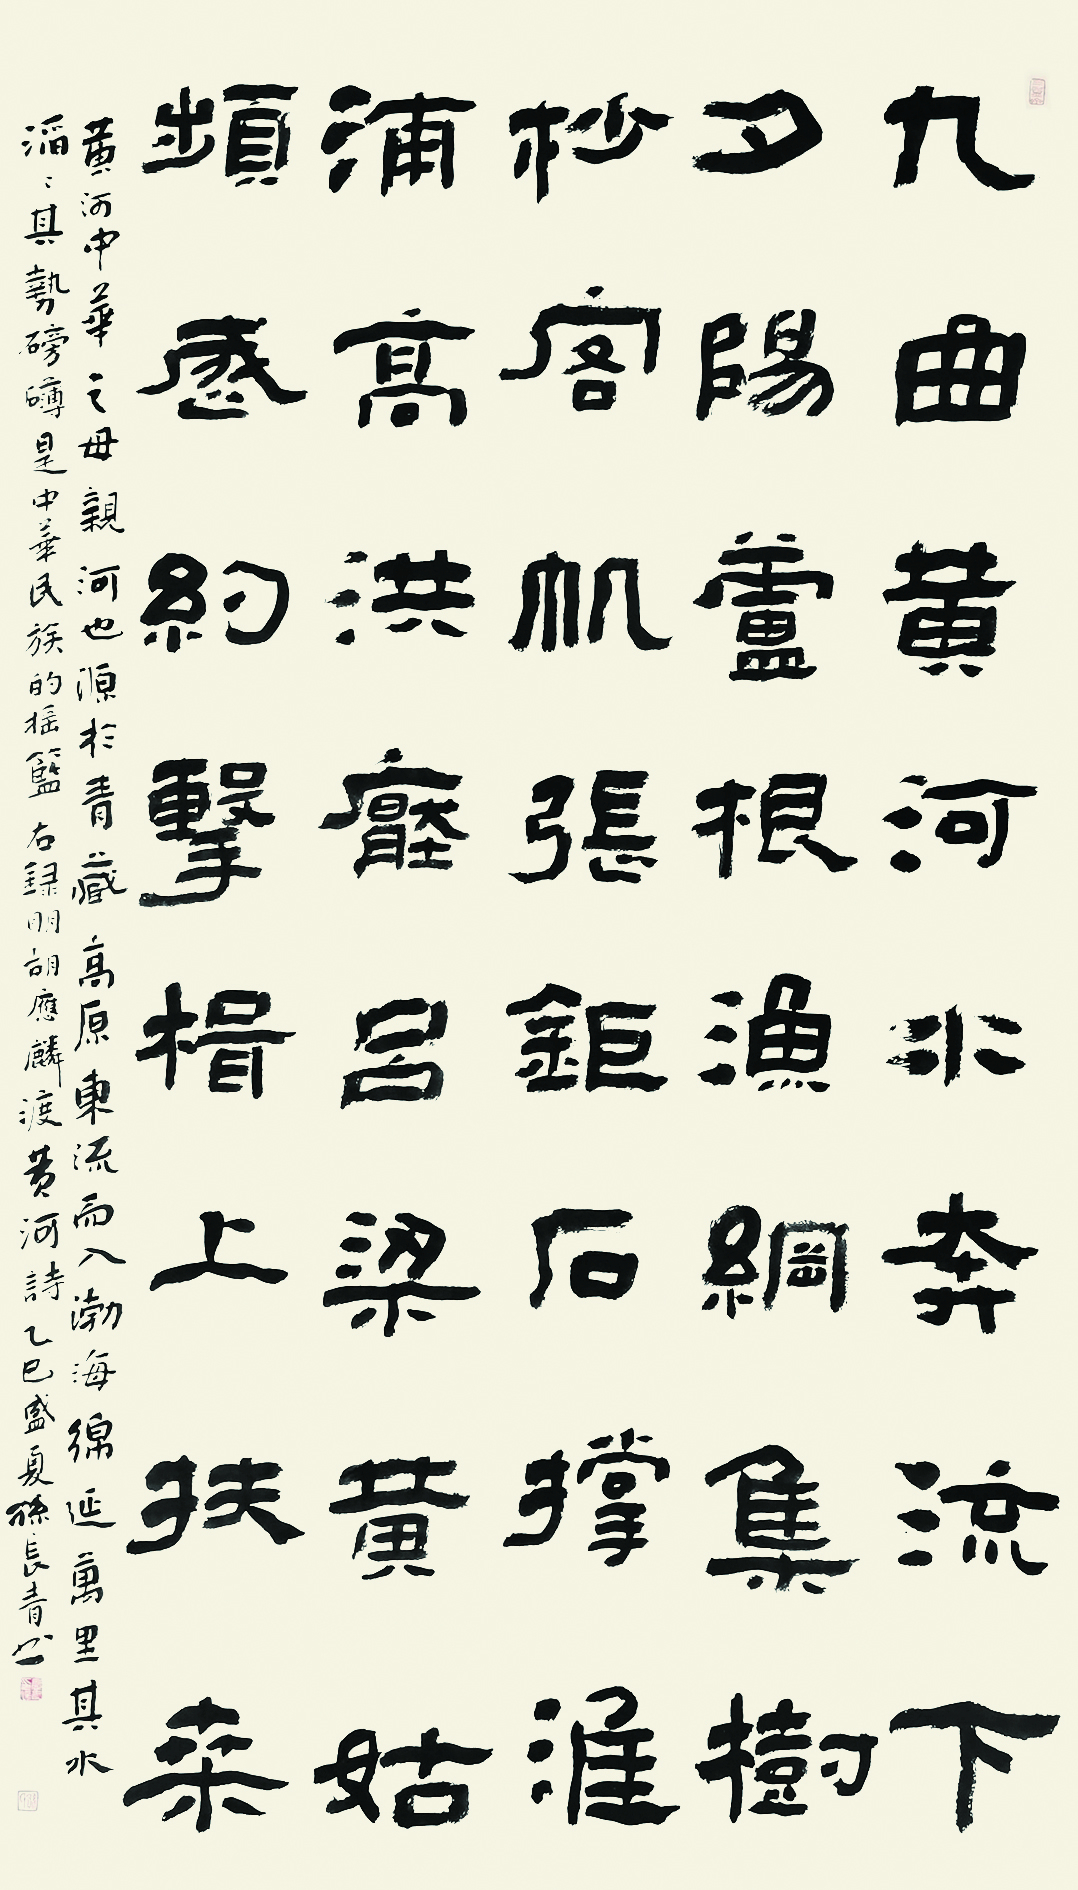 九曲黃河水奔流下
夕陽蘆根漁網集樹
杪客帆張鉅石撐淮
浦高洪廱呂梁黃姑
頻感約擊楫上扶桒
黃河中華之母親河也源於青藏高原東流而入渤海綿延萬里其水
滔〻其勢磅礴是中華民族的摇籃 右録明胡應麟渡黃河詩乙巳盛夏孫長青书